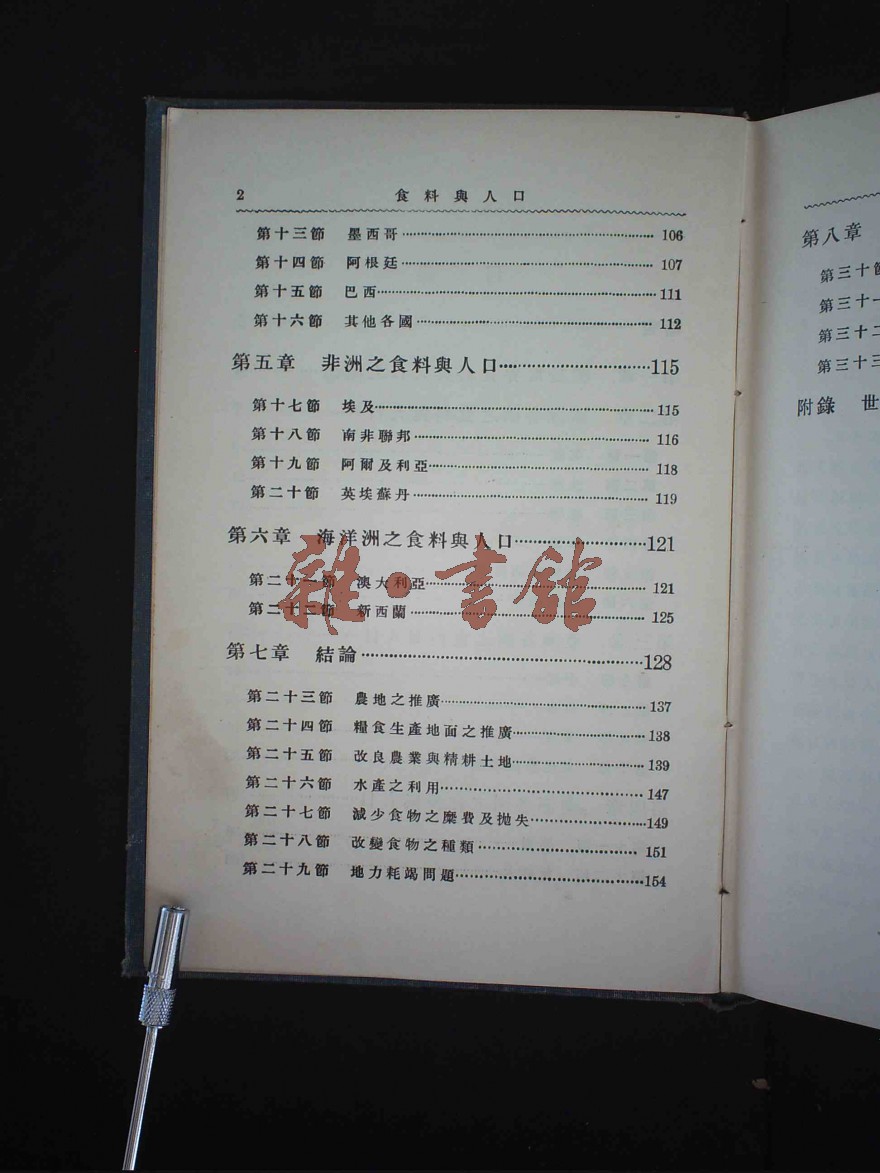 2 食料與人口
第十三節 墨西哥 106
第十四節 阿根廷 107
第十五節 巴西 111
第十六節 其他各國 112
第五章 非洲之食料與人口 115
第十七節 埃及 115
第十八節 南非聯邦 116
第十九節 阿爾及利亞 118
第二十節 英埃蘇丹 119
第六章 海洋洲之食料與人口 121
第二十一節 澳大利亞 121
第二十二節 新西蘭 125
雜·書館
第七章 結論 128
第二十三節 農地之推廣 137
第二十四節 糧食生產地面之推廣 138
第二十五節 改良農業與精耕土地 139
第二十六節 水產之利用 147
第二十七節 減少食物之糜費及拋失 149
第二十八節 改變食物之種類 151
第二十九節 地力耗竭問題 154
第八章
第三十節
第三十一
第三十二
第三十三
附錄 世